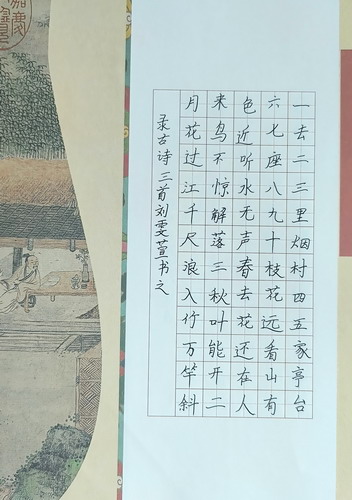 一去二三里烟村四五家亭台
六七座八九十枝花远看山有
色近听水无声春去花还在人
来鸟不惊解落三秋叶能开二
月花过江千尺浪入竹万竿斜
录古诗三首刘雯萱书之